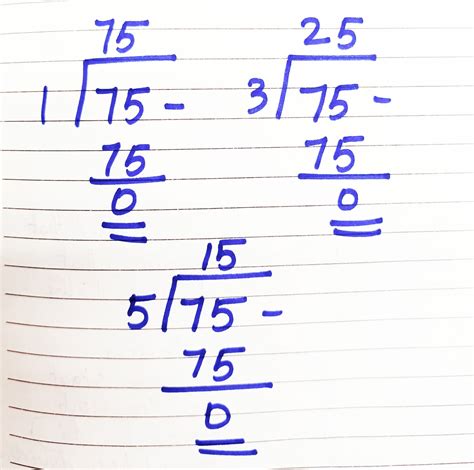 75 25
1 75 - 3 75 -
75 75
0 0
15
5 75 -
75
0